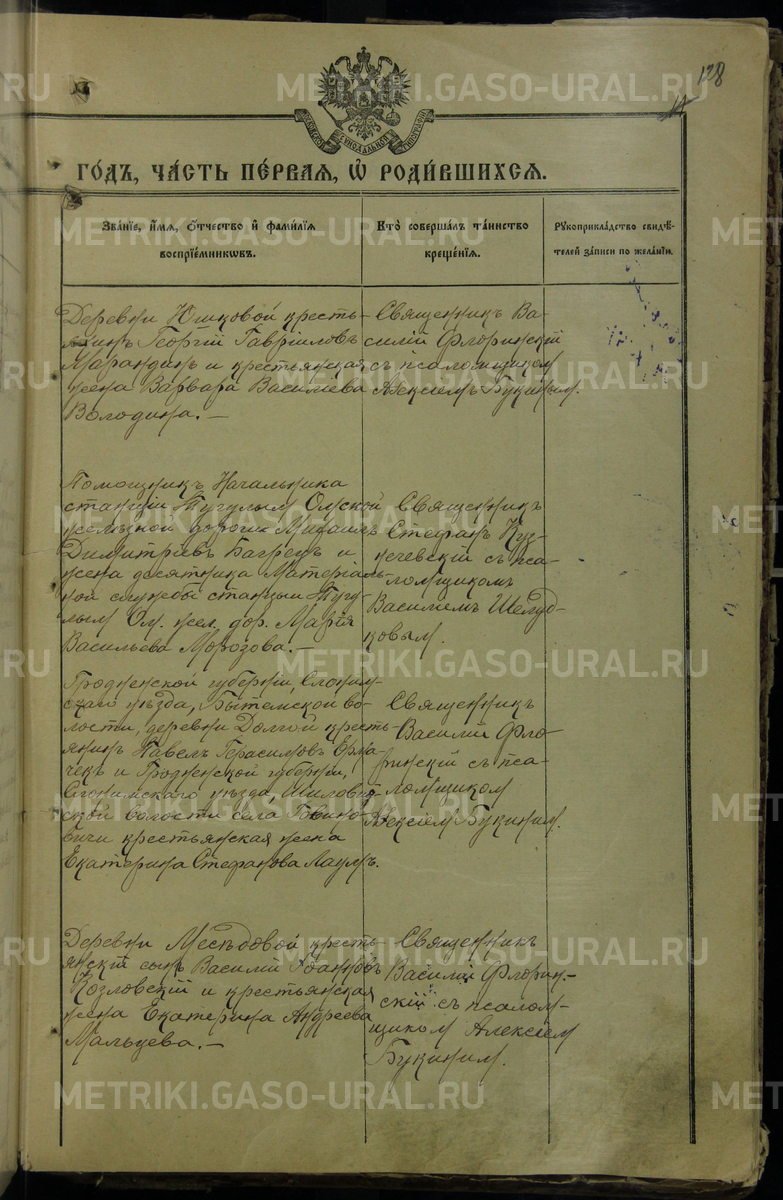 128
14
ГО́ДЪ, ЧА́СТЬ ПЕ́РВАЯ, Ѡ҆ РОДИ́ВШИХСЯ.
Зва́нїе, и҆́мя, ѻ҆́тчество и҆ фами́лїя воспрїе́мникѡвъ.
Кто̀ соверша́лъ та́инство креще́нїя.
Рꙋкоприкла́дство свидѣ́телей за́писи по жела́нїю.
Деревни Юшковой кресть-
янинъ Георгій Гавріиловъ
Марандинъ и крестьянская
жена Варвара Васильева
Володина. —
Священникъ Ва-
силій Флоринскій
съ псаломщикомъ
Алексіемъ Букинымъ.
Помощникъ Начальника
станціи Тугулымъ Омской
желѣзной дороги Михаилъ
Димитріевъ Багрецъ и
жена десятника Матеріаль-
ной службы станціи Тугу-
лымъ Ом. жел. дор. Марія
Васильева Морозова. —
Священникъ
Стефанъ
съ пса-
ломщикомъ
Василіемъ Шелуд-
ковымъ.
Гродненской губерніи, Слоним-
скаго уѣзда, Бытенской во-
лости, деревни Долгой кресть-
янинъ Павелъ Герасимовъ
и Гродненской губерніи,
Слонимскаго уѣзда
ской волости села
крестьянская жена
Екатерина Стефанова
Священникъ
Василій Фло-
ринскій съ пса-
ломщиком
Алексіем Букиним.
Деревни Месѣдовой кресть-
янскій сынъ Василій Іоанновъ
Козловскій и крестьянская
жена Екатерина Андреева
Мальцева. —
Священникъ
Василій Флорин-
скій съ псалом-
щиком Алексіем
Букиним.
METRIKI.GASO-URAL.RU